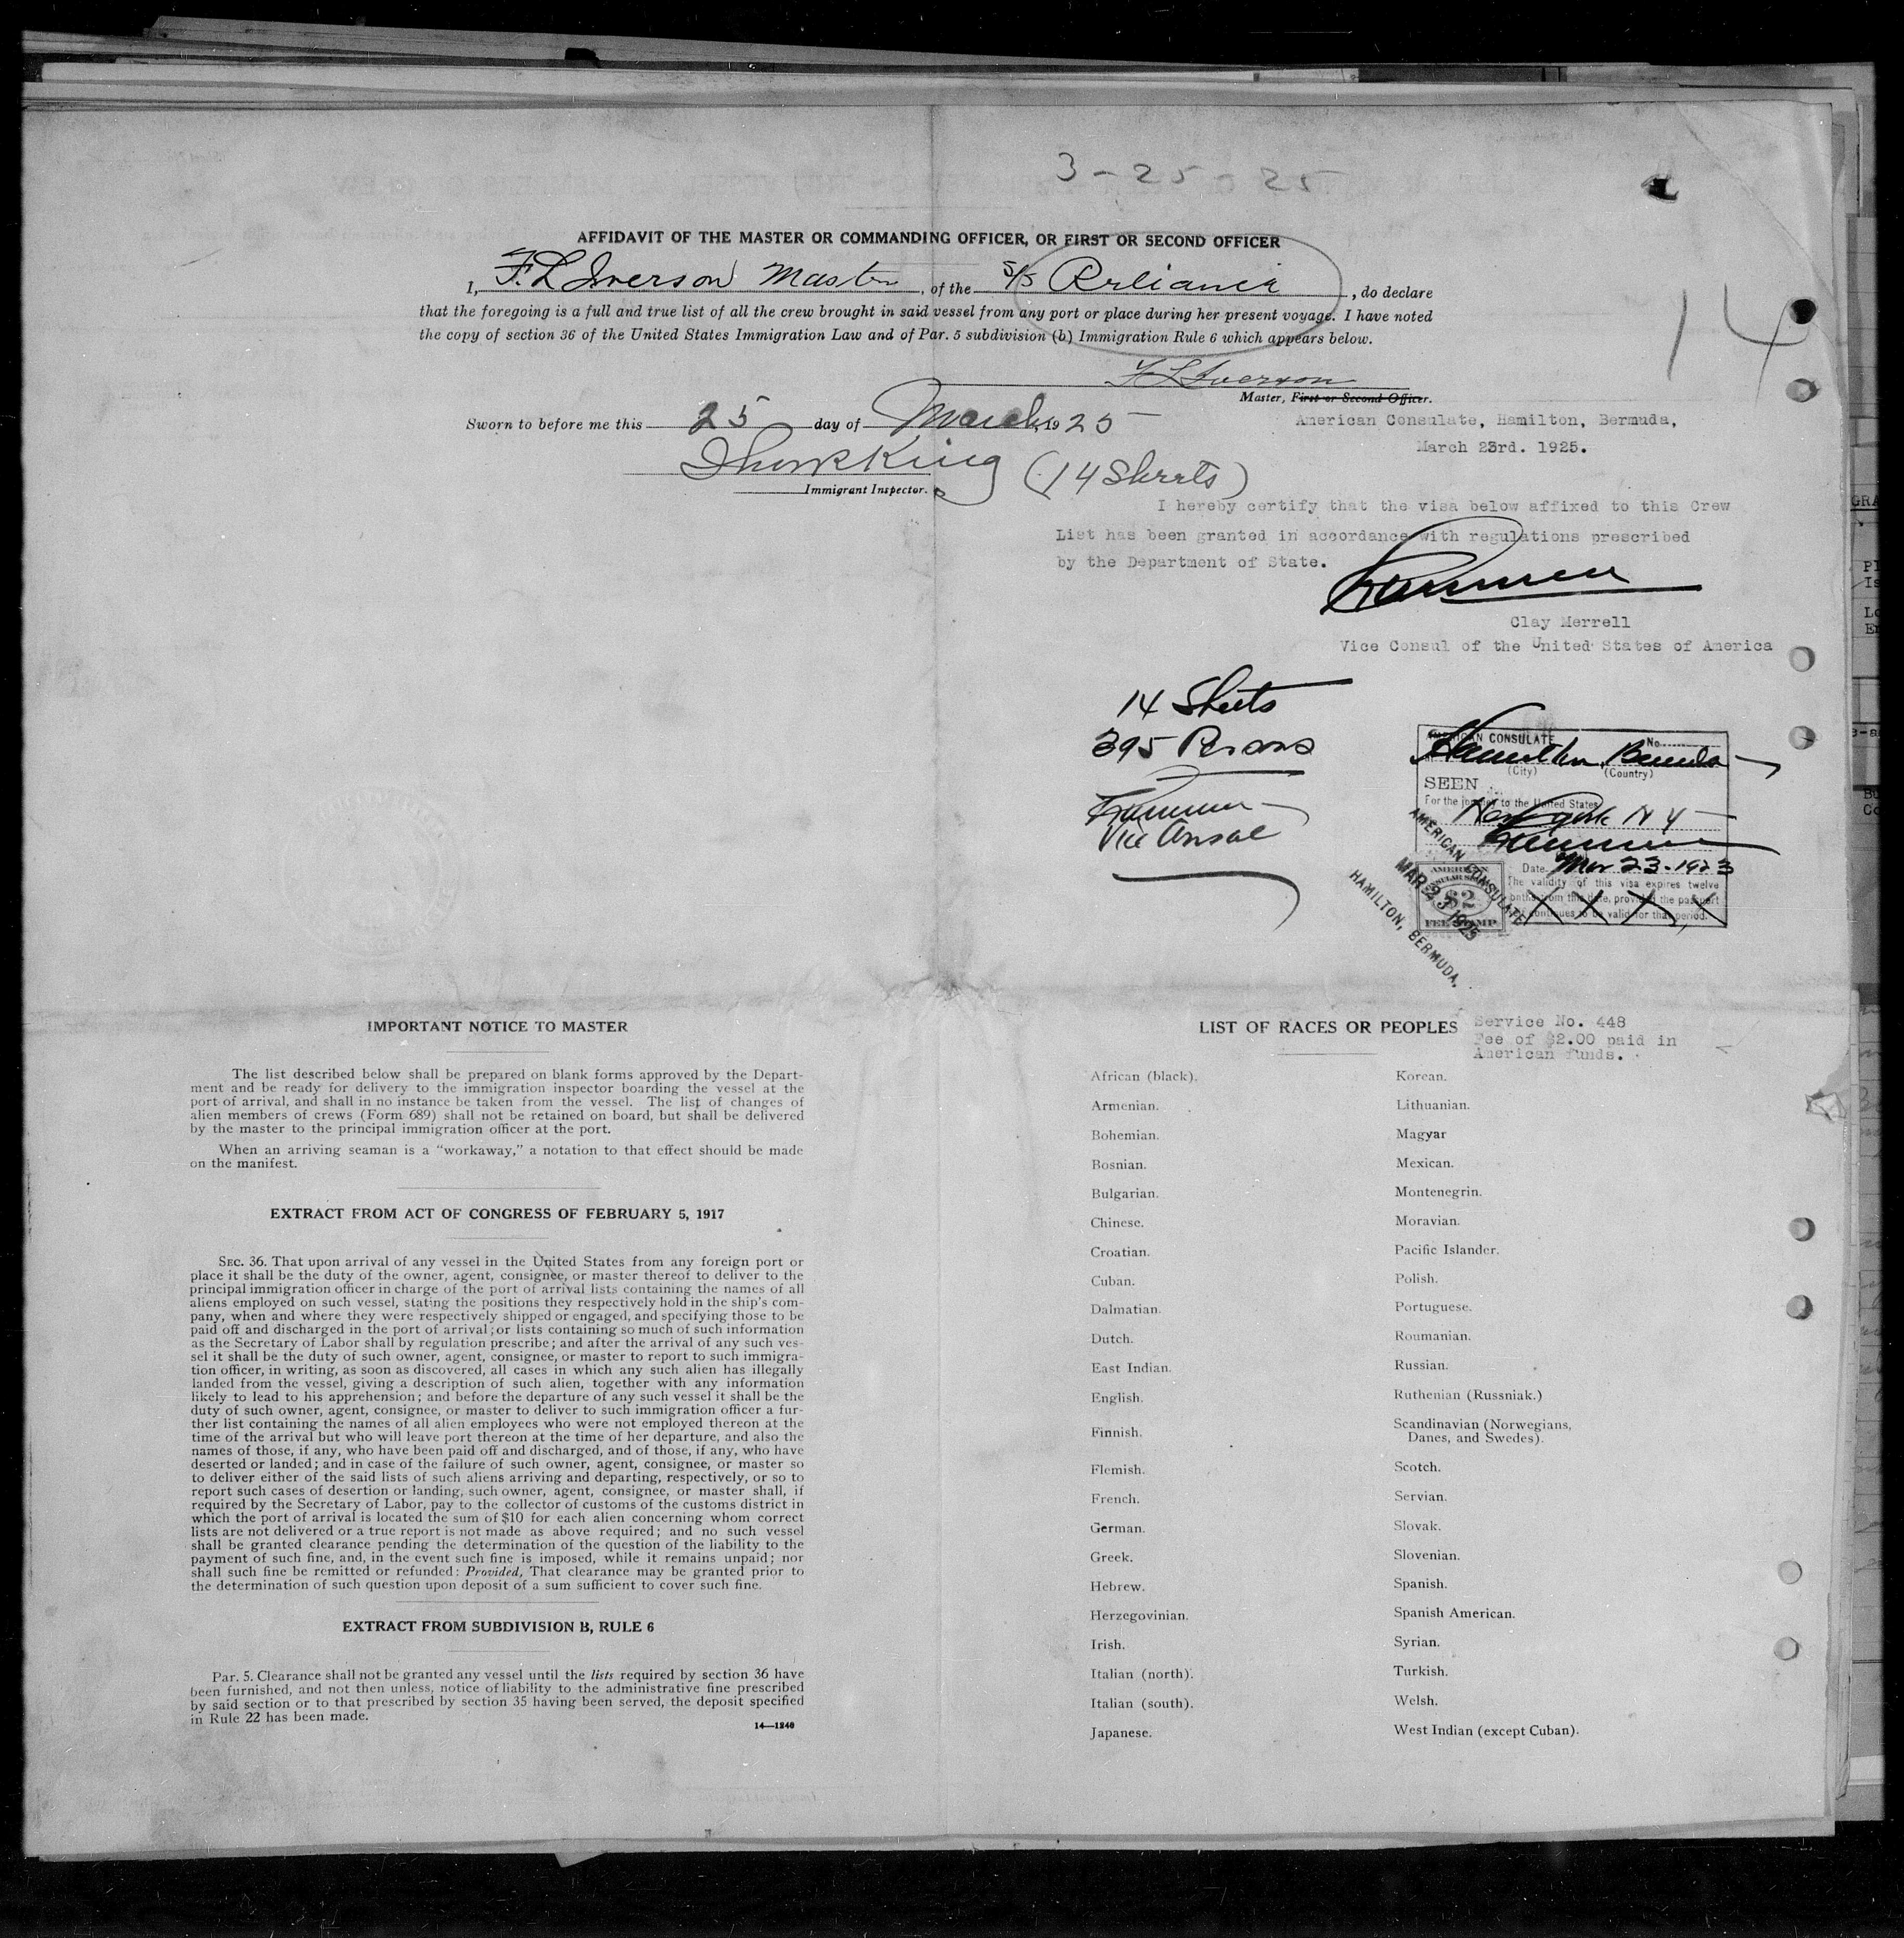 3-25-25
AFFIDAVIT OF THE MASTER OR COMMANDING OFFICER, OR FIRST OR SECOND OFFICER
I, F. L. Iverson Master, of the S/S Reliance, do declare
that the foregoing is a full and true list of all the crew brought in said vessel from any port or place during her present voyage. I have noted
the copy of section 36 of the United States Immigration Law and of Par. 5 subdivision (b) Immigration Rule 6 which appears below.
14
F L Iverson
Master, First or Second Officer.
Sworn to before me this 25 day of March, 1925
King (14 Sheets)
Immigrant Inspector.
American Consulate, Hamilton, Bermuda,
March 23rd. 1925.
I hereby certify that the visa below affixed to this Crew
List has been granted in accordance with regulations prescribed
by the Department of State.
Clay Merrell
Vice Consul of the United States of America
14 Sheets
395 Persons
Vice Consul
AMERICAN CONSULATE No.
Hamilton, Bermuda
(City) (Country)
SEEN
For the journey to the United States
New York N Y
Date Mar 23-1923
The validity of this visa expires twelve
months from this date, provided the passport
continues to be valid for that period.
X X X X
AMERICAN
CONSULAR SERVICE
$2
FEE STAMP
AMERICAN CONSULATE
MAR 23 1925
HAMILTON, BERMUDA.
IMPORTANT NOTICE TO MASTER
The list described below shall be prepared on blank forms approved by the Depart-
ment and be ready for delivery to the immigration inspector boarding the vessel at the
port of arrival, and shall in no instance be taken from the vessel. The list of changes of
alien members of crews (Form 689) shall not be retained on board, but shall be delivered
by the master to the principal immigration officer at the port.
When an arriving seaman is a "workaway," a notation to that effect should be made
on the manifest.
EXTRACT FROM ACT OF CONGRESS OF FEBRUARY 5, 1917
SEC. 36. That upon arrival of any vessel in the United States from any foreign port or
place it shall be the duty of the owner, agent, consignee, or master thereof to deliver to the
principal immigration officer in charge of the port of arrival lists containing the names of all
aliens employed on such vessel, stating the positions they respectively hold in the ship's com-
pany, when and where they were respectively shipped or engaged, and specifying those to be
paid off and discharged in the port of arrival; or lists containing so much of such information
as the Secretary of Labor shall by regulation prescribe; and after the arrival of any such ves-
sel it shall be the duty of such owner, agent, consignee, or master to report to such immigra-
tion officer, in writing, as soon as discovered, all cases in which any such alien has illegally
landed from the vessel, giving a description of such alien, together with any information
likely to lead to his apprehension; and before the departure of any such vessel it shall be the
duty of such owner, agent, consignee, or master to deliver to such immigration officer a fur-
ther list containing the names of all alien employees who were not employed thereon at the
time of the arrival but who will leave port thereon at the time of her departure, and also the
names of those, if any, who have been paid off and discharged, and of those, if any, who have
deserted or landed; and in case of the failure of such owner, agent, consignee, or master so
to deliver either of the said lists of such aliens arriving and departing, respectively, or so to
report such cases of desertion or landing, such owner, agent, consignee, or master shall, if
required by the Secretary of Labor, pay to the collector of customs of the customs district in
which the port of arrival is located the sum of $10 for each alien concerning whom correct
lists are not delivered or a true report is not made as above required; and no such vessel
shall be granted clearance pending the determination of the question of the liability to the
payment of such fine, and, in the event such fine is imposed, while it remains unpaid; nor
shall such fine be remitted or refunded: Provided, That clearance may be granted prior to
the determination of such question upon deposit of a sum sufficient to cover such fine.
EXTRACT FROM SUBDIVISION B, RULE 6
Par. 5. Clearance shall not be granted any vessel until the lists required by section 36 have
been furnished, and not then unless, notice of liability to the administrative fine prescribed
by said section or to that prescribed by section 35 having been served, the deposit specified
in Rule 22 has been made.
14—1240
LIST OF RACES OR PEOPLES
Service No. 448
Fee of $2.00 paid in
American funds.
African (black).
Armenian.
Bohemian.
Bosnian.
Bulgarian.
Chinese.
Croatian.
Cuban.
Dalmatian.
Dutch.
East Indian.
English.
Finnish.
Flemish.
French.
German.
Greek.
Hebrew.
Herzegovinian.
Irish.
Italian (north).
Italian (south).
Japanese.
Korean.
Lithuanian.
Magyar
Mexican.
Montenegrin.
Moravian.
Pacific Islander.
Polish.
Portuguese.
Roumanian.
Russian.
Ruthenian (Russniak.)
Scandinavian (Norwegians,
Danes, and Swedes).
Scotch.
Servian.
Slovak.
Slovenian.
Spanish.
Spanish American.
Syrian.
Turkish.
Welsh.
West Indian (except Cuban).